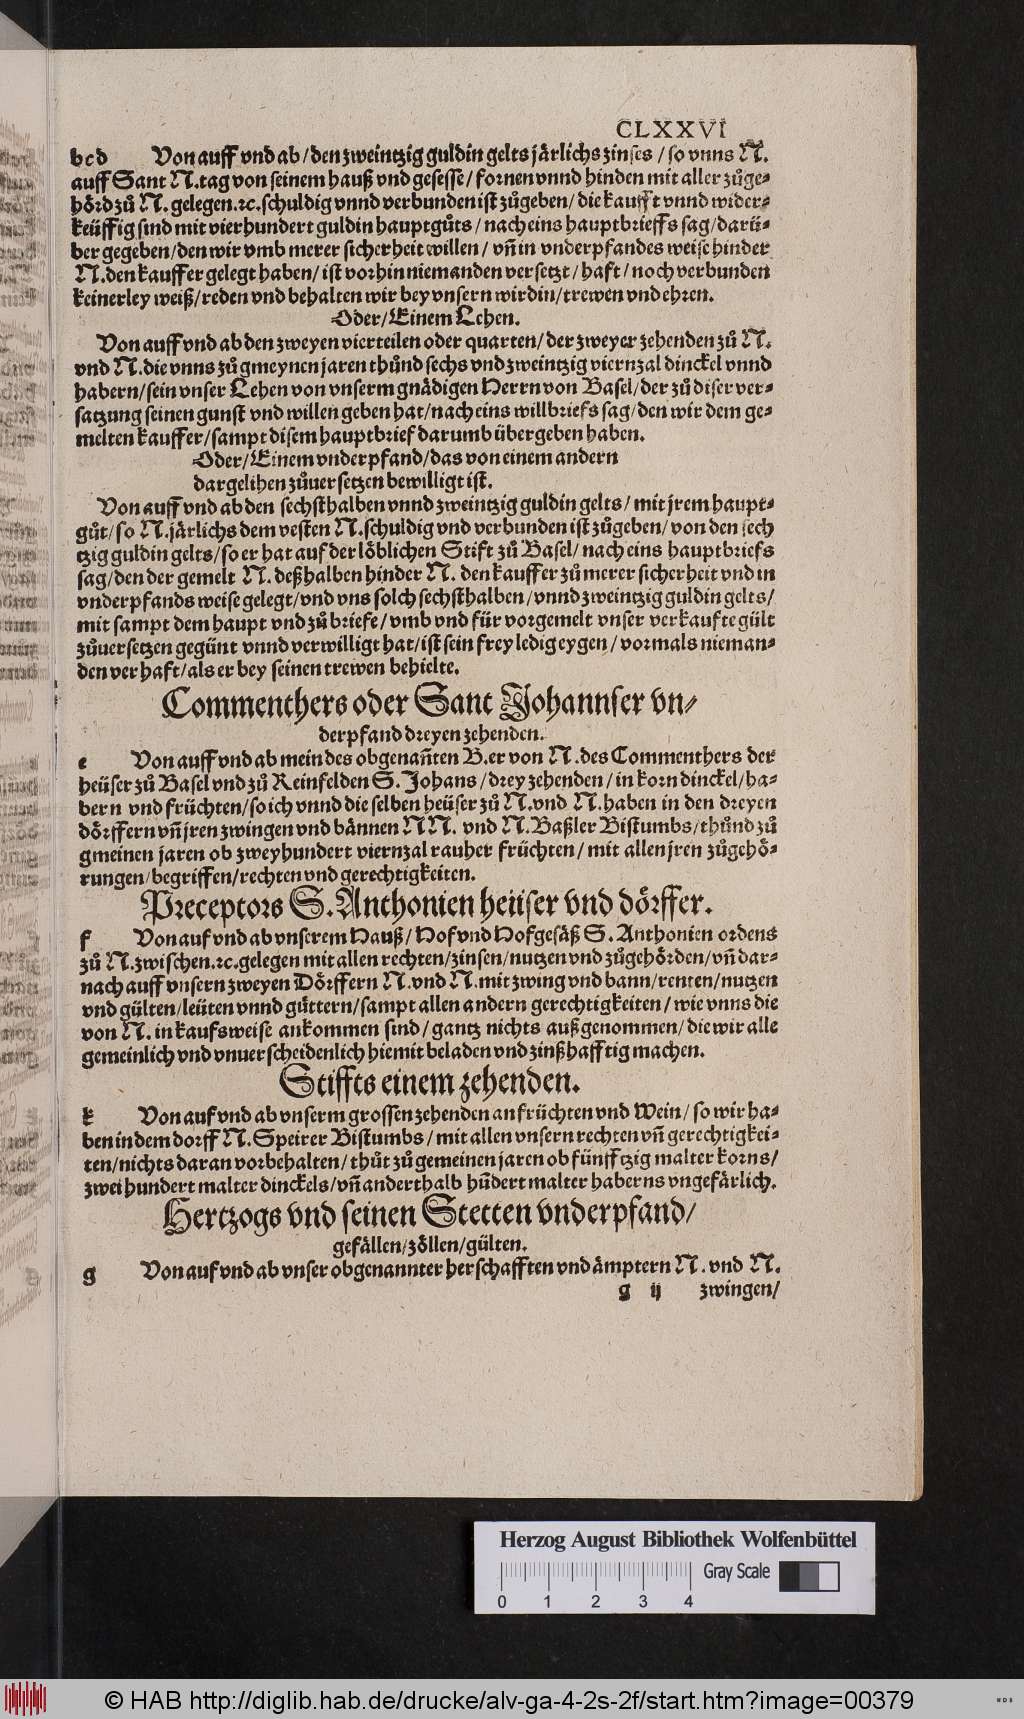 CLXXVI
b c d Von auff vnd ab/den zweintzig guldin gelts järlichs zinses/so vnns N.
auff Sant N.tag von seinem hauß vnd gesesse/fornen vnnd hinden mit aller zůge-
hörd zů N.gelegen.ꝛc.schuldig vnnd verbunden ist zůgeben/die kaufft vnnd wider-
keüffig sind mit vierhundert guldin hauptgůts/nach eins hauptbrieffs sag/darü-
ber gegeben/den wir vmb merer sicherheit willen/vn̄ in vnderpfandes weise hinder
N.den kauffer gelegt haben/ist vorhin niemanden versetzt/haft/noch verbunden
keinerley weiß/reden vnd behalten wir bey vnsern wirdin/trewen vnd ehren.
Oder/Einem Lehen.
Von auff vnd ab den zweyen vierteilen oder quarten/der zweyer zehenden zů N.
vnd N.die vnns zů gmeynen jaren thůnd sechs vnd zweintzig viernzal dinckel vnnd
habern/sein vnser Lehen von vnserm gnädigen Herrn von Basel/der zů diser ver-
satzung seinen gunst vnd willen geben hat/nach eins willbriefs sag/den wir dem ge-
melten kauffer/sampt disem hauptbrief darumb übergeben haben.
Oder/Einem vnderpfand/das von einem andern
dargelihen zůuersetzen bewilligt ist.
Von auff vnd ab den sechsthalben vnnd zweintzig guldin gelts/mit jrem haupt-
gůt/so N.järlichs dem vesten N.schuldig vnd verbunden ist zůgeben/von den sech
tzig guldin gelts/so er hat auf der löblichen Stift zů Basel/nach eins hauptbriefs
sag/den der gemelt N.deßhalben hinder N.den kauffer zů merer sicherheit vnd in
vnderpfands weise gelegt/vnd vns solch sechsthalben/vnnd zweintzig guldin gelts/
mit sampt dem haupt vnd zůbriefe/vmb vnd für vorgemelt vnser verkaufte gült
zůuersetzen gegünt vnnd verwilligt hat/ist sein frey ledig eygen/vormals nieman-
den verhaft/als er bey seinen trewen behielte.
Commenthers oder Sant Johannser vn-
derpfand dreyen zehenden.
e Von auff vnd ab mein des obgenan̄ten B.er von N.des Commenthers der
heüser zů Basel vnd zů Reinfelden S.Johans/drey zehenden/in korn dinckel/ha-
bern vnd früchten/so ich vnnd die selben heüser zů N.vnd N.haben in den dreyen
dörffern vn̄ jren zwingen vnd bännen N N. vnd N.Baßler Bistumbs/thůnd zů
gmeinen jaren ob zweyhundert viernzal rauher früchten/mit allen jren zůgehö-
rungen/begriffen/rechten vnd gerechtigkeiten.
Preceptors S.Anthonien heüser vnd dörffer.
f Von auf vnd ab vnserem Hauß/Hof vnd Hofgesäß S.Anthonien ordens
zů N.zwischen.ꝛc.gelegen mit allen rechten/zinsen/nutzen vnd zůgehörden/vn̄ dar-
nach auff vnsern zweyen Dörffern N.vnd N.mit zwing vnd bann/renten/nutzen
vnd gülten/leüten vnnd güttern/sampt allen andern gerechtigkeiten/wie vnns die
von N.in kaufsweise ankommen sind/gantz nichts außgenommen/die wir alle
gemeinlich vnd vnuerscheidenlich hiemit beladen vnd zinßhafftig machen.
Stiffts einem zehenden.
k Von auf vnd ab vnserm grossen zehenden an früchten vnd Wein/so wir ha-
ben in dem dorff N.Speirer Bistumbs/mit allen vnsern rechten vn̄ gerechtigkei-
ten/nichts daran vorbehalten/thůt zů gemeinen jaren ob fünfftzig malter korns/
zweihundert malter dinckels/vn̄ anderthalb hūdert malter haberns vngefärlich.
Hertzogs vnd seinen Stetten vnderpfand/
gefällen/zöllen/gülten.
g Von auf vnd ab vnser obgenannter herschafften vnd ämptern N.vnd N.
g ij zwingen/
Herzog August Bibliothek Wolfenbüttel
Gray Scale
0 1 2 3 4
© HAB http://diglib.hab.de/drucke/alv-ga-4-2s-2f/start.htm?image=00379